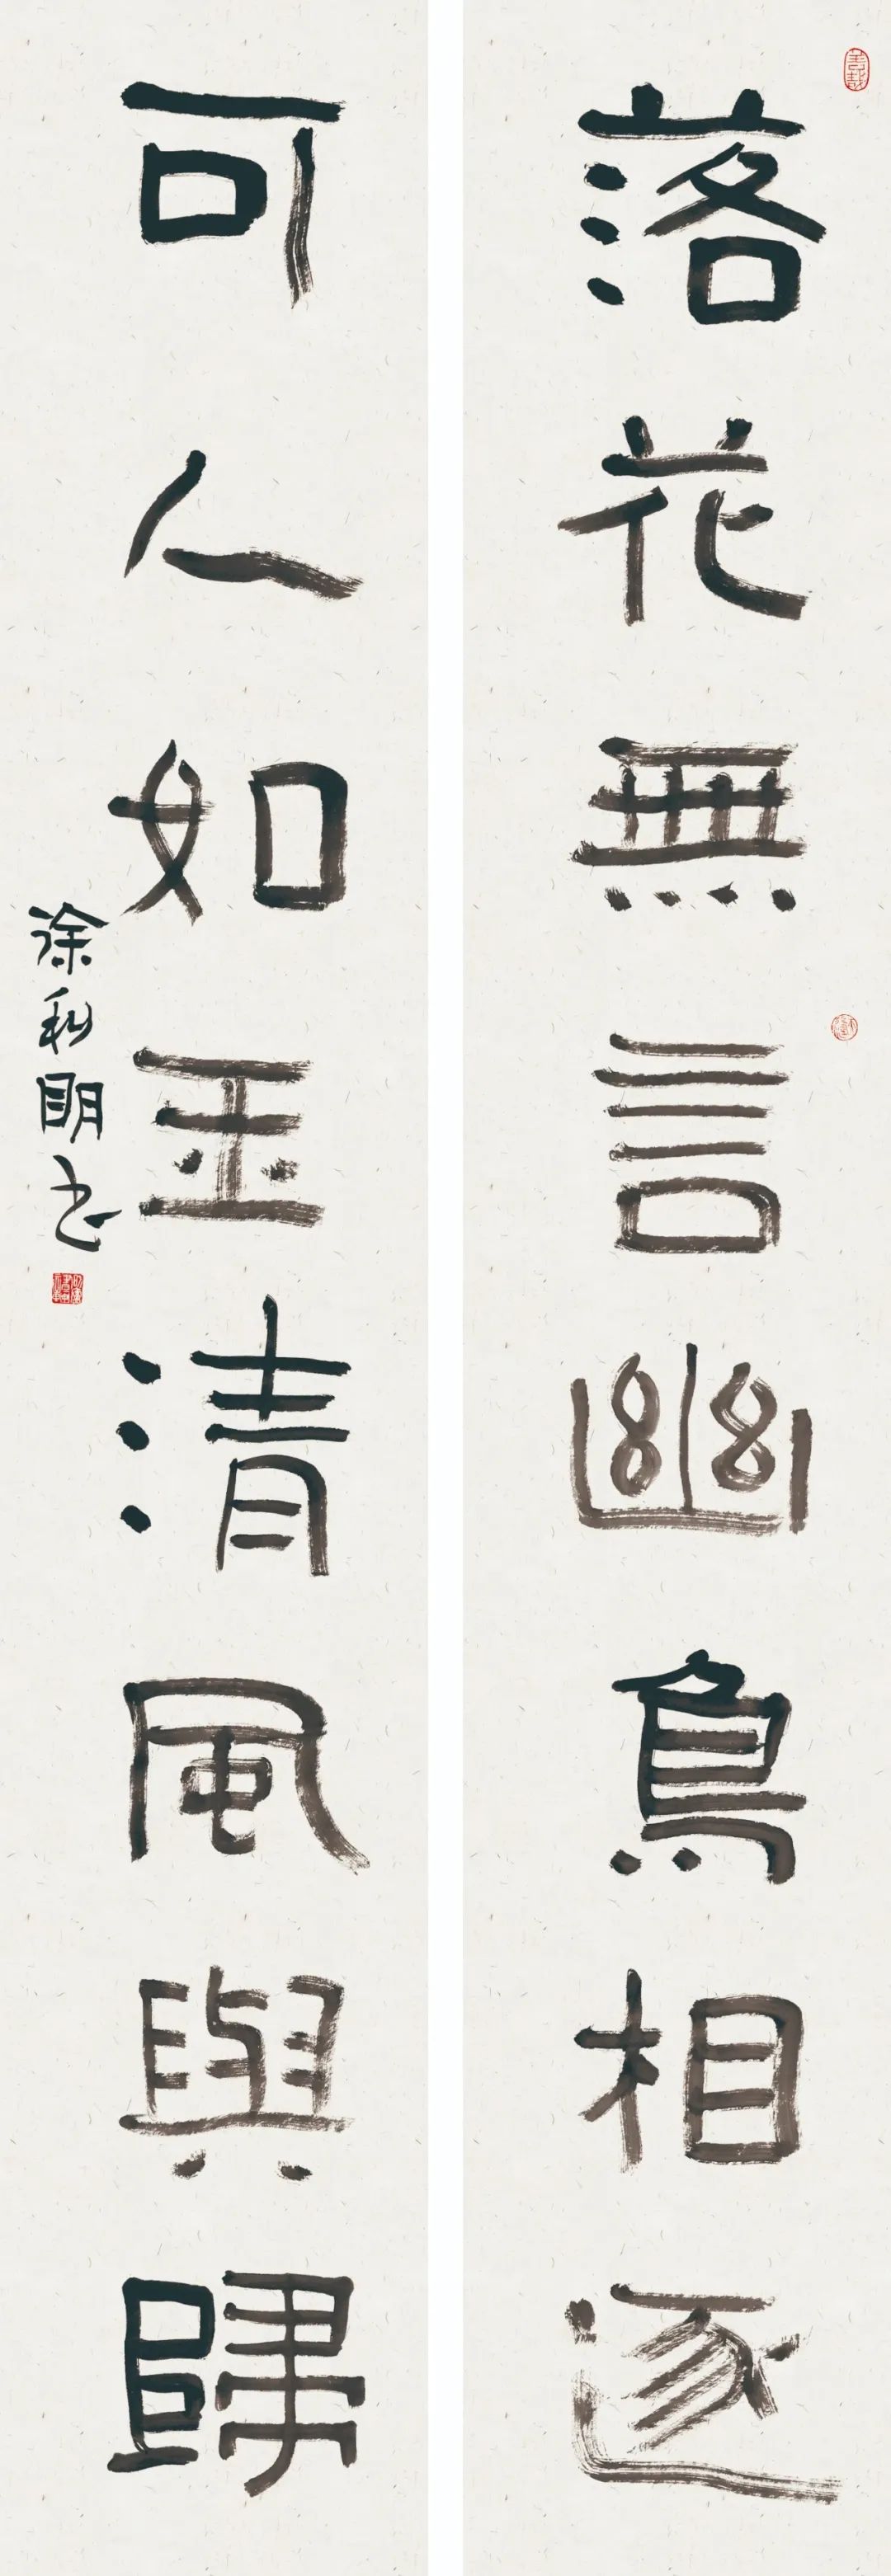 落花無言幽鳥相逐
可人如玉清風與歸
涂利明书